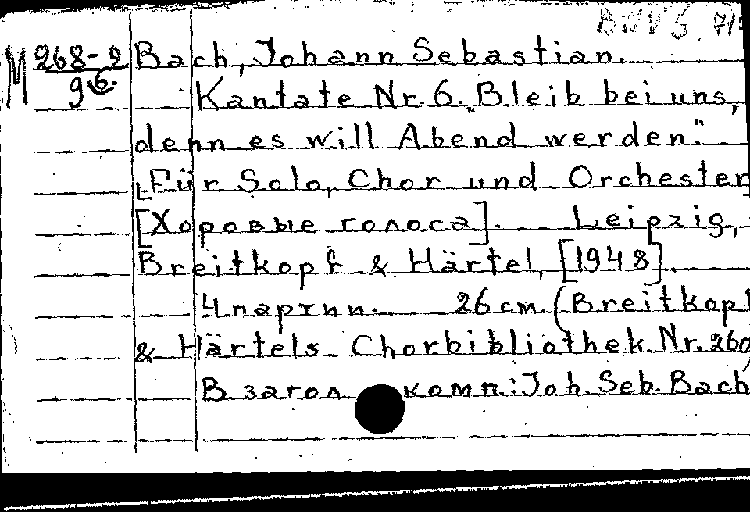 BWV 6
M 268-2 Bach, Johann Sebastian.
96 Kantate Nr. 6. „Bleib bei uns,
denn es will Abend werden."
Für Solo, Chor und Orchester
[Хоровые голоса]. Leipzig,
Breitkopf & Härtel, [1948].
4 партии. 26 см. (Breitkopf
& Härtels Chorbibliothek Nr. 260
В загол. комп.: Joh. Seb. Bach